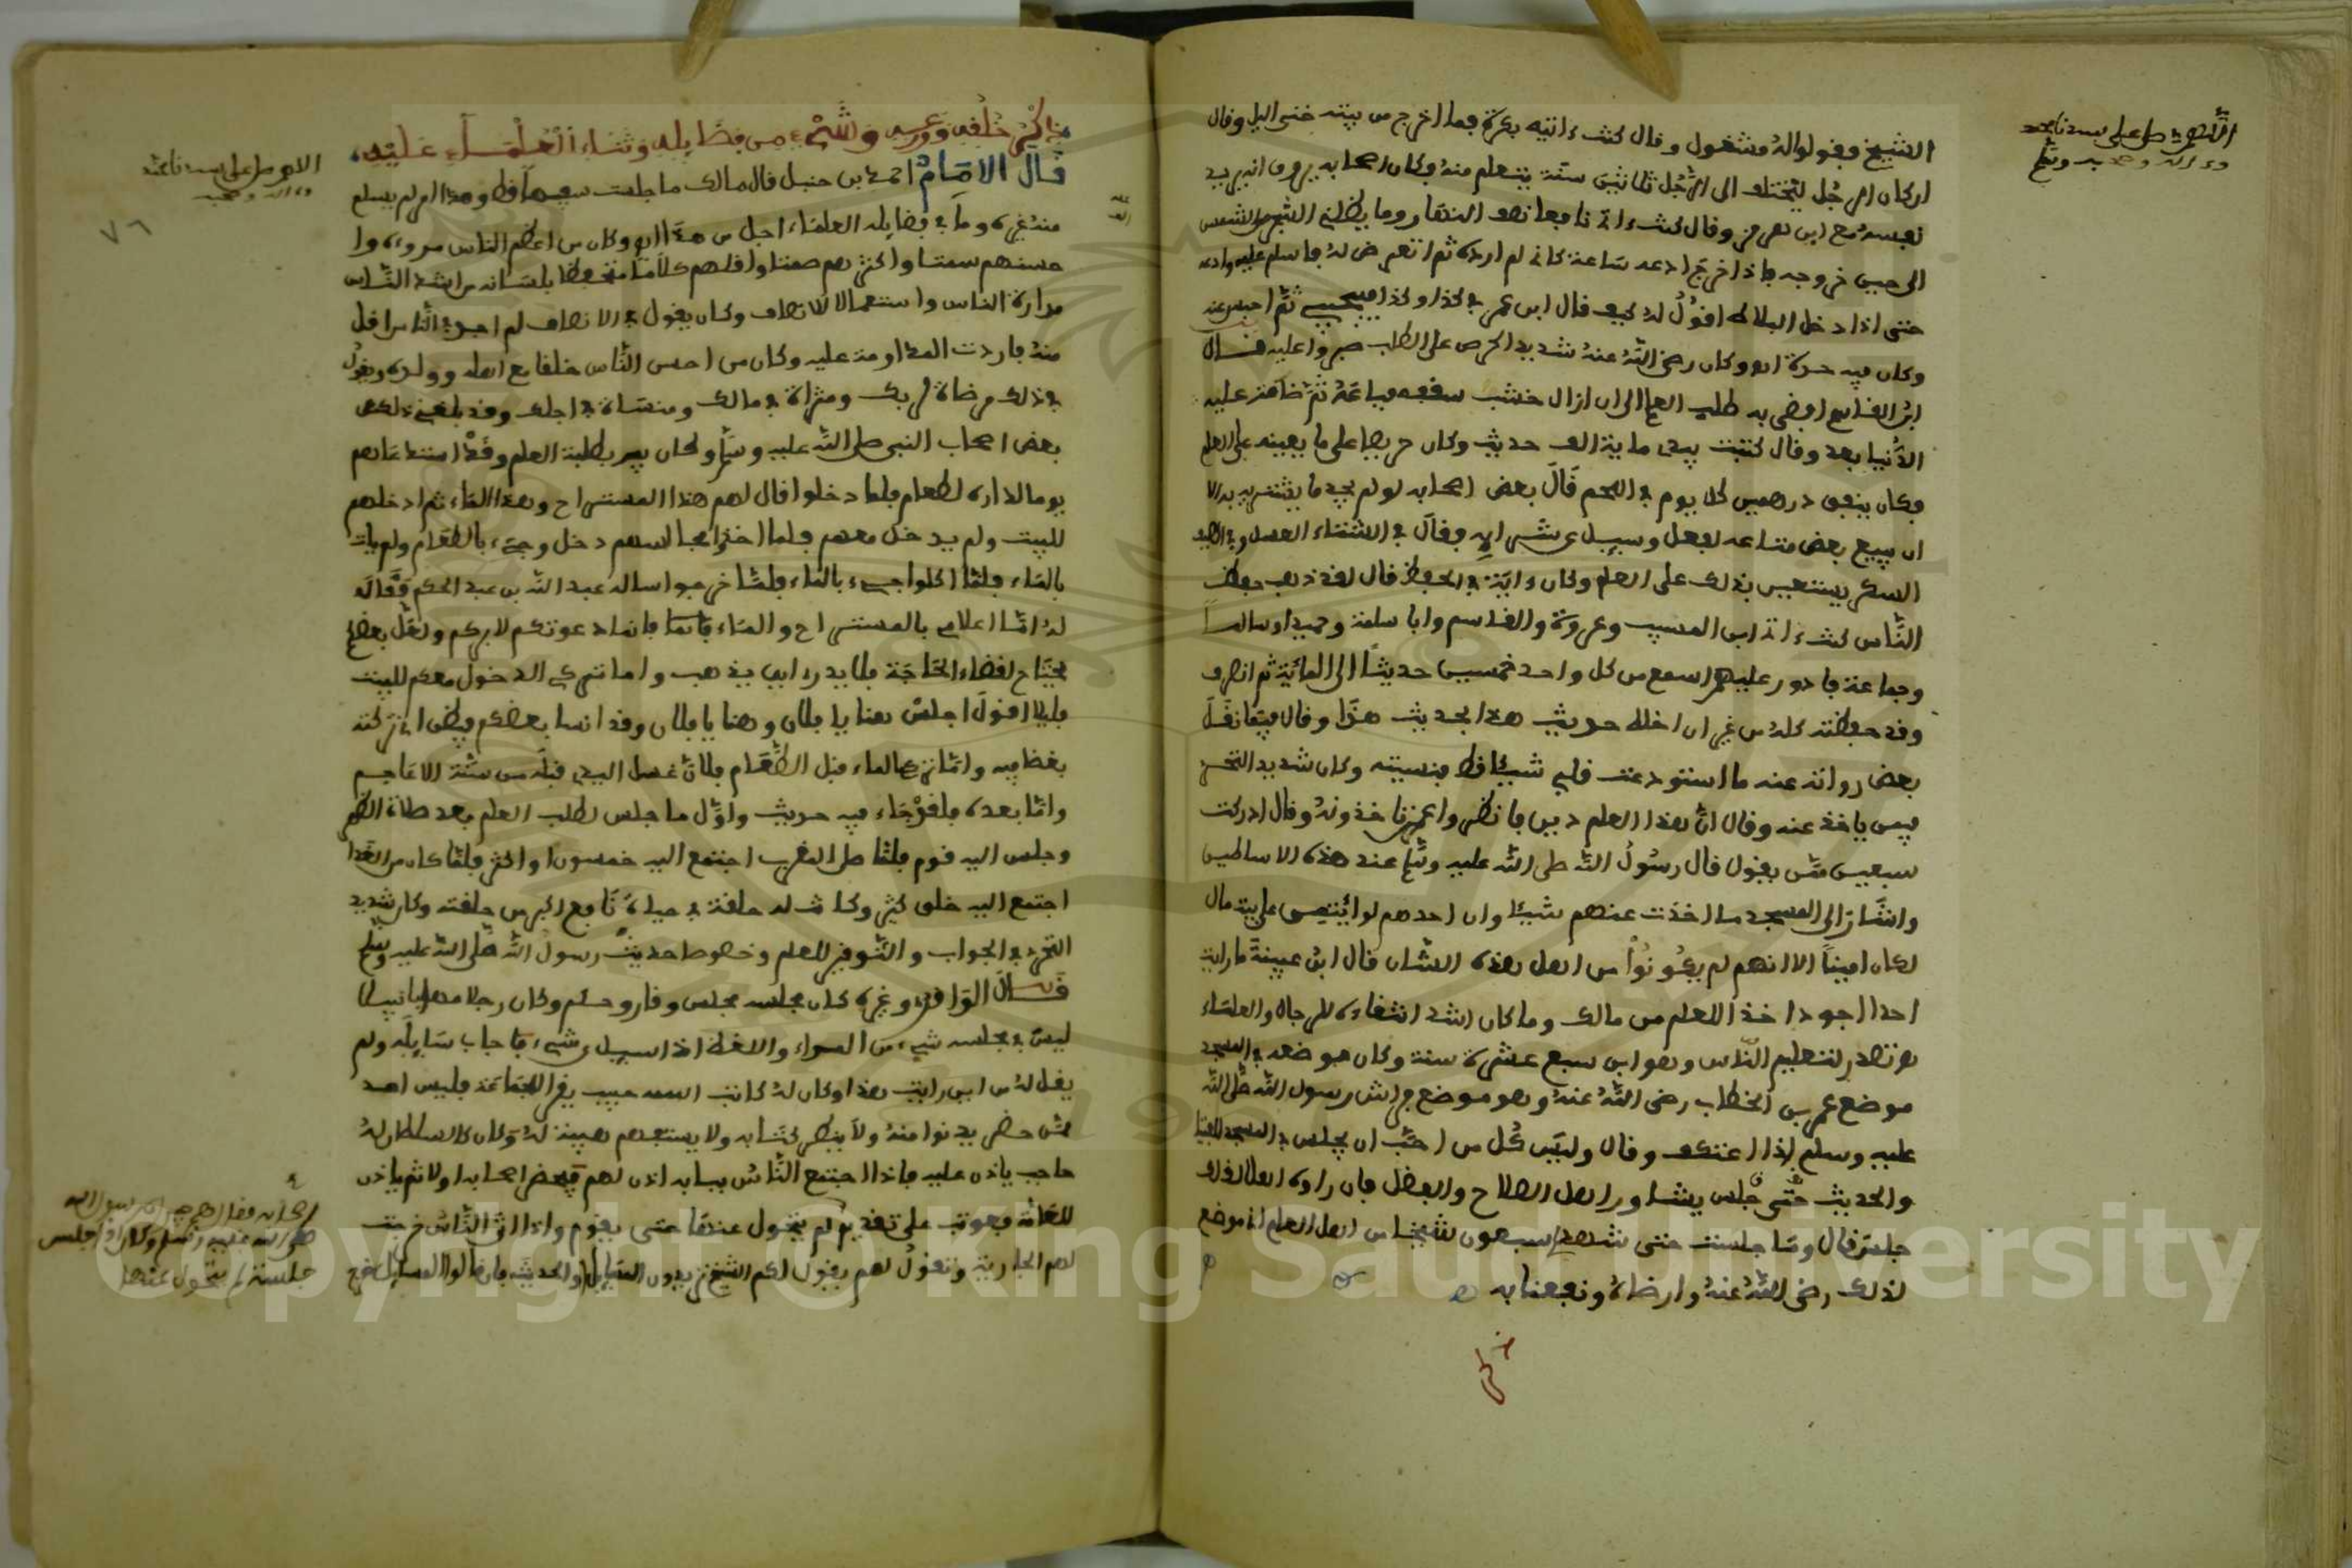 الشيخ فيقولوا له مشغول وقال كنت ءاتيه بكرة فما اخرج من بيته حتى اليل وقال
ان كان الرجل ليختلف الى الرجل ثلاثين سنة يتعلم منه وكان اصحابه يرون انه يريد
نفسه مع ابن هرمز وقال كنت ءاتى نافعا نصف النهار وما يظلنى الشجر من الشمس
الى حين خروجه فاذا خرج ادعه ساعة كانى لم ارده ثم اتعرض له فاسلم عليه وادعه
حتى اذا دخل البلاط اقول له كيف قال ابن عمر فى كذا وكذا فيجيبنى ثم احبس عنه
وكان فيه حدة اه وكان رضى الله عنه شديد الحرص على الطلب صبروا عليه قال
ابن القاسم افضى به طلب العلم الى ان ازال خشب سقفه فباعه ثم ضامنه عليه
الدنيا بعد وقال كتبت بيدى ماية الف حديث وكان حريصا على ما يعينه على العلم
وكان ينفق درهمين كل يوم فى اللحم قال بعض اصحابه لو لم يجد ما يشتريه به الا
ان يبيع بعض متاعه لفعل وسيل عن شرابه فقال فى الشتاء العسل وفى الصيف
السكر يستعين بذلك على العلم وكان ءاية فى الحفظ قال لقد ذهب حفظ
الناس كنت ءاتى ابن المسيب وعروة والقاسم وابا سلمة وحميدا وسالما
وجماعة فادور عليهم اسمع من كل واحد خمسين حديثا الى المائة ثم انصرف
وقد حفظته كله من غير ان اخلط حديث هذا بحديث هذا وقال فيما نقل
بعض رواته عنه ما استودعت قلبى شيئا قط فنسيته وكان شديد التحرى
فيمن ياخذ عنه وقال ان هذا العلم دين فانظروا عمن تاخذونه وقال ادركت
سبعين ممن يقول قال رسول الله صلى الله عليه وسلم عند هذه الاساطين
واشار الى المسجد ما اخذت عنهم شيئا وان احدهم لو ائتمن على بيت مال
لكان امينا الا انهم لم يكونوا من اهل هذه الشان قال ابن عيينة ما رايت
احدا اجود اخذا للعلم من مالك وما كان اشد انتقاءه للرجال والعلماء
وتصدر لتعليم الناس وهو ابن سبع عشرة سنة وكان موضعه فى المسجد
موضع عمر بن الخطاب رضى الله عنه وهو موضع فراش رسول الله صلى الله
عليه وسلم اذا اعتكف وقال وليس كل من احب ان يجلس فى المسجد للفتيا
والحديث جلس حتى يشاور اهل الصلاح والفضل فان راوه اهلا لذلك
جلس قال وما جلست حتى شهد لى سبعون شيخا من اهل العلم انى موضع
لذلك رضى الله عنه وارضاه ونفعنا به
ذكر
اللهم صل على سيدنا محمد
وءاله وصحبه وسلم
ذكر خلقه وورعه وشىء من فضايله وثناء العلماء عليه
قال الامام احمد بن حنبل قال مالك ما جالست سفيها قط وهذا امر لم يسلم
منه غيره وما فى فضايله العلماء اجل من هذا اه وكان من اعظم الناس مروءة وا
حسنهم سمتا واكثرهم صمتا واقلهم كلاما متحفظا بلسانه من اشد الناس
مداراة الناس واستعمالا للانصاف وكان يقول فى الانصاف لم اجد فى الناس اقل
منه فاردت المداومة عليه وكان من احسن الناس خلقا مع اهله وولده ويقول
فى ذلك مرضاة لربك ومثراة فى مالك ومنساة فى اجلك وقد بلغنى ذلك عن
بعض اصحاب النبى صلى الله عليه وسلم وكان يبر بطلبة العلم وقد استدعاهم
يوما لداره لطعام فلما دخلوا قال لهم هذا المستراح وهذا الماء ثم ادخلهم
للبيت ولم يدخل معهم فلما اخذوا مجالسهم دخل وجىء بالطعام ولم يات
بالماء فلما اكلوا جىء بالماء فلما خرجوا ساله عبد الله بن عبد الحكم فقال
له اما اعلامى بالمستراح والماء فانما دعوتكم لابركم ولعل بعضكم
يحتاج لقضاء الحاجة فلا يدرى اين يذهب واما تركى الدخول معكم للبيت
فليلا اقول اجلس هنا يا فلان وهنا يا فلان وقد انسا بعضكم فيظن انى تركته
بغضا فيه واما تركى الماء قبل الطعام فلان غسل اليد قبله من سنة الاعاجم
واما بعده فلقد جاء فيه حديث واول ما جلس لطلب العلم بعد صلاة الظهر
وجلس اليه قوم فلما صلى المغرب اجتمع اليه خمسون او اكثر فلما كان من الغد
اجتمع اليه خلق كثير وكانت له حلقة فى حياة نافع اكبر من حلقته وكان شديد
التحرى فى الجواب والتوقير للعلم وخصوصا حديث رسول الله صلى الله عليه وسلم
قال الواقدى وغيره كان مجلسه مجلس وقار وحلم وكان رجلا مهابا نبيلا
ليس فى مجلسه شىء من المراء واللغط اذا سيل عن شىء فاجاب سايله ولم
يقل له من اين رايت هذا وكان له كاتب اسمه حبيب يقرا للجماعة فليس احد
ممن حضر يدنوا منه ولا ينظر كتابه ولا يستفهم هيبة له وكان كالسلطان له
حاجب ياذن عليه فاذا اجتمع الناس ببابه اذن لهم فيحضر اصحابه اولا ثم ياذن
للعامة فعوتب على تقديم لم يتحول عنها حتى يقوم واذا اتى الناس خرجت
لهم الجارية وتقول لهم يقول لكم الشيخ تريدون المسايل او الحديث فان قالوا المسايل خرج
اللهم صل على سيدنا محمد
وءاله وصحبه
٧٦
اصحابه فقال اصحب جيران رسول الله
صلى الله عليه وسلم وكان اذا جلس
جلسة لم يتحول عنها
Copyright © King Saud University